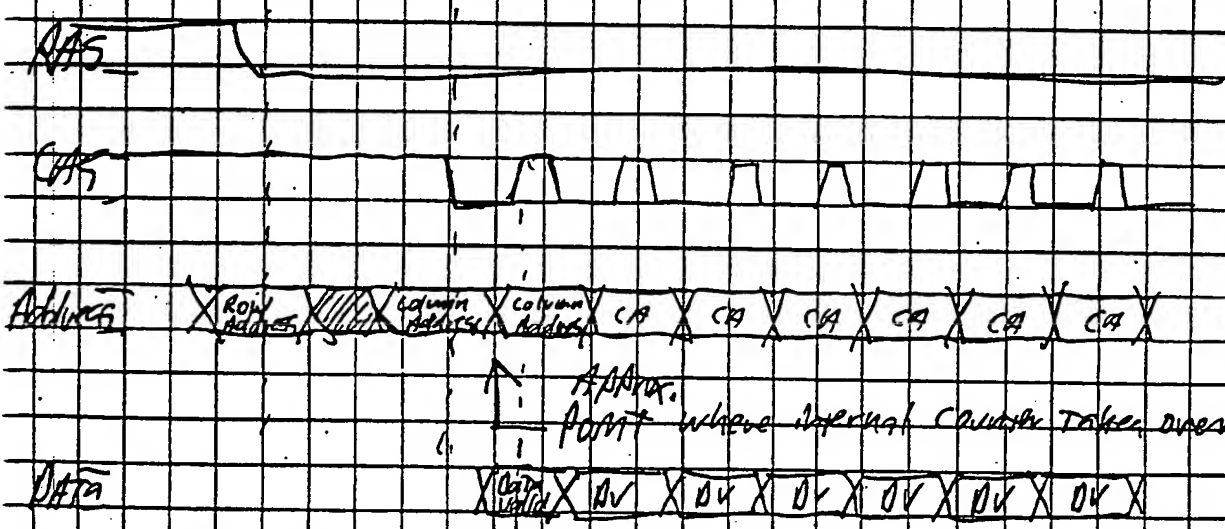 RAS
CAS
Address
Row Address
Column Address
Column Address
CA
CA
CA
CA
CA
CA
Approx.
Point where internal Counter Takes over
DATA
Data Valid
DV
DV
DV
DV
DV
DV